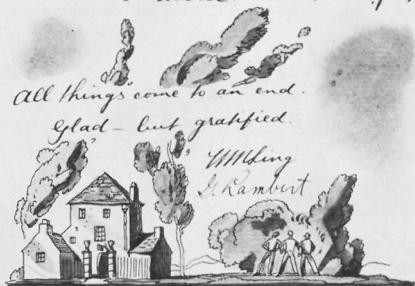 All things come to an end.
Glad - but gratified.
G. Lambert